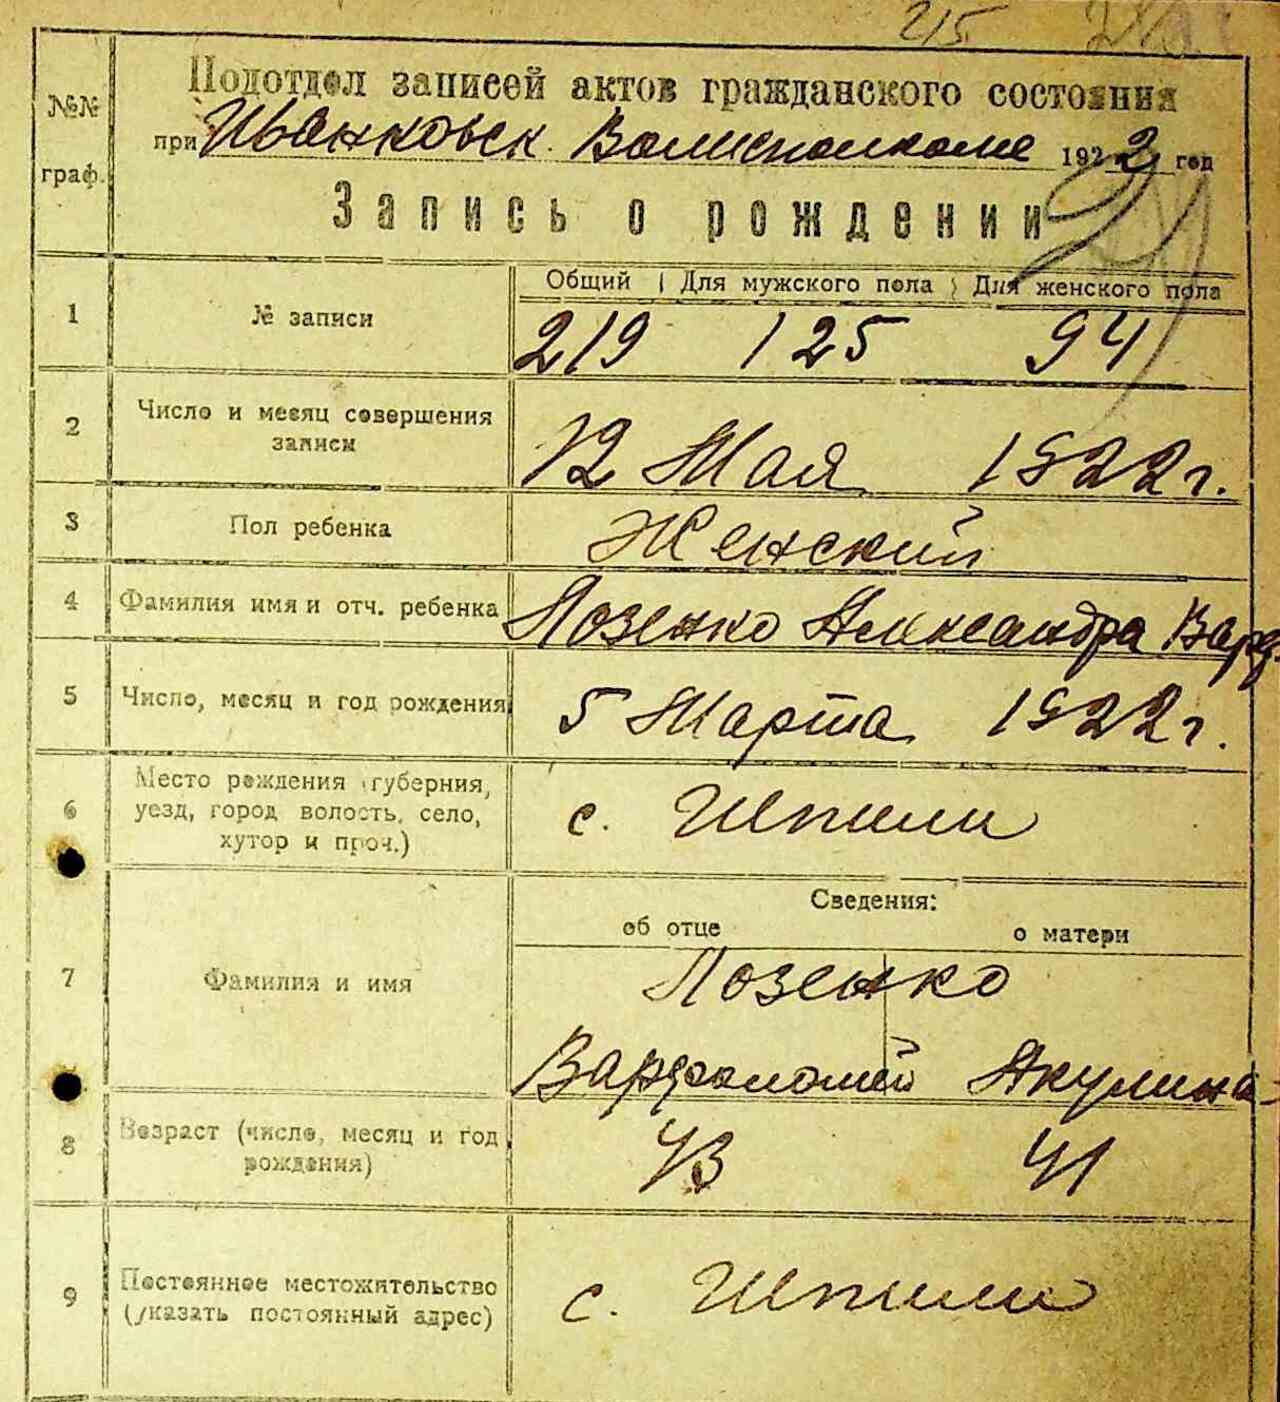 215
№№ граф.
Подотдел записей актов гражданского состояния
при Иванковск. Волисполкоме 1922 год
Запись о рождении
1 № записи
Общий Для мужского пола Для женского пола
219 125 94
2 Число и месяц совершения записи
12 Мая 1922 г.
3 Пол ребенка Женский
4 Фамилия имя и отч. ребенка Лозенко Александра Варф.
5 Число, месяц и год рождения 5 Марта 1922 г.
6 Место рождения (губерния,
уезд, город волость, село,
хутор и проч.)
с. Шпили
Сведения:
об отце о матери
7 Фамилия и имя
Лозенко
Варфоломей Акулина
8 Возраст (число, месяц и год
рождения)
43 41
9 Постоянное местожительство
(указать постоянный адрес)
с. Шпили